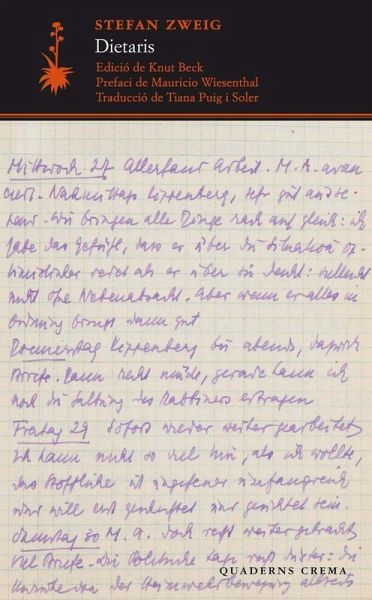 STEFAN ZWEIG
Dietaris
Edició de Knut Beck
Prefaci de Mauricio Wiesenthal
Traducció de Tiana Puig i Soler
Mittwoch 27 Allerhand Arbeit. M. A. avan
ciert. Nachmittags Kippenberg, sehr gut
Wir bringen alle Dinge rasch auf gleich: ich
habe das Gefühl, dass er über die Situation op-
timistischer redet als er über sie denkt: vielleicht
nicht ohne Nebenabsicht. Aber wenn er alles in
Ordnung bringt dann gut
Donnerstag Kippenberg bis abends,
Briefe. Dann recht müde, gerade kann ich
noch die des Rabbiners ertragen
Freitag 29 Sofort wieder weitergearbeitet
Ich kann nicht so viel tun, als ich wollte,
das Stoffliche ist ungeheuer umfangreich
und will erst und gesichtet sein.
Samstag 30 M. A. doch recht weitergebracht
Viel Briefe. Die Politische Lage recht düster: die
der Heimwehrbewegung
QUADERNS CREMA